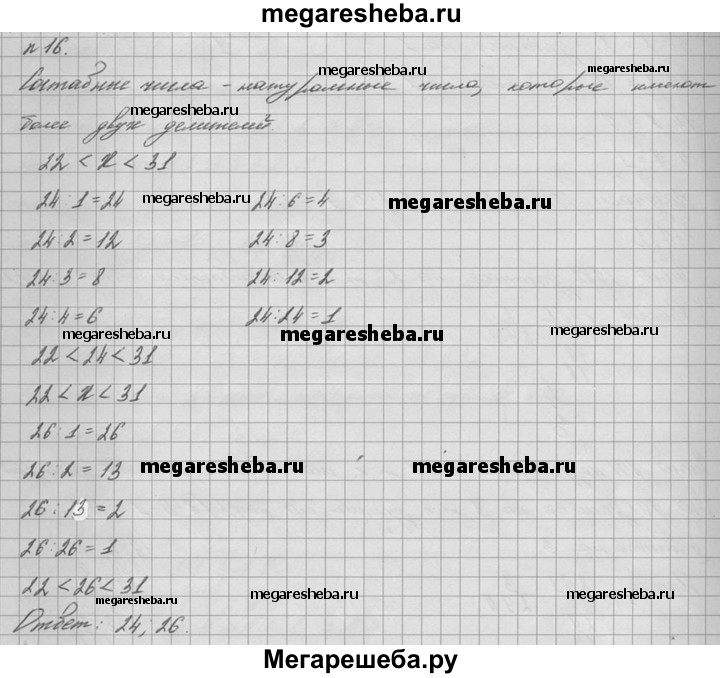 megaresheba.ru
n 16.
Составные числа - натуральные числа, которые имеют
megaresheba.ru megaresheba.ru
более двух делителей.
megaresheba.ru
22 < x < 31
24 : 1 = 24 megaresheba.ru 24 : 6 = 4 megaresheba.ru
24 : 2 = 12 24 : 8 = 3
24 : 3 = 8 24 : 12 = 2
24 : 4 = 6 24 : 24 = 1
megaresheba.ru megaresheba.ru megaresheba.ru
22 < 24 < 31
22 < x < 31
26 : 1 = 26
26 : 2 = 13 megaresheba.ru megaresheba.ru
26 : 13 = 2
26 : 26 = 1
22 < 26 < 31
megaresheba.ru megaresheba.ru megaresheba.ru
Ответ: 24; 26.
Мегарешеба.ру